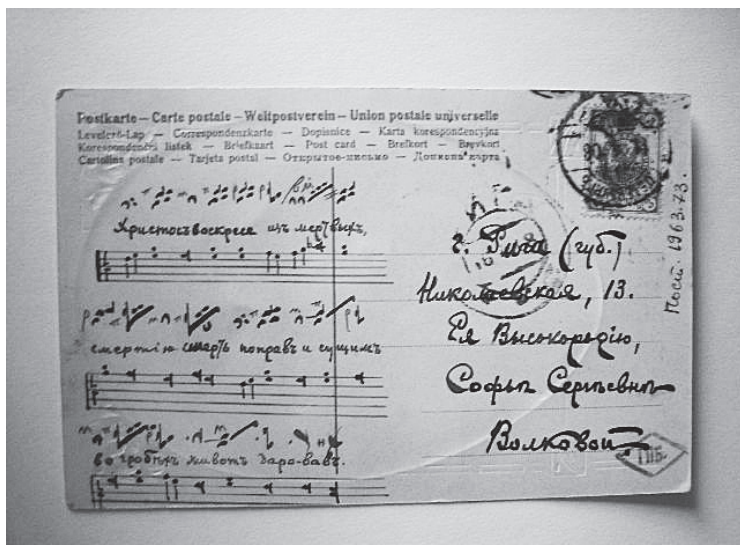 Postkarte – Carte postale – Weltpostverein – Union postale universelle
Levelező-Lap — Correspondenzkarte — Dopisnice — Karta korespondencyjna
Korespondenční lístek — Briefkaart — Post card — Brefkort — Brevkort
Cartolina postale — Tarjeta postal — Открытое-письмо — Дописна карта
Христосъ воскресе изъ мертвыхъ,
смертію смерть поправъ и сущимъ
во гробѣхъ животъ дарова­въ.
г. Рига (губ.)
Николаевская, 13.
Ея Высокородію,
Софьѣ Сергѣевнѣ
Волковой.
Пост. 1963.73.
ГПБ.